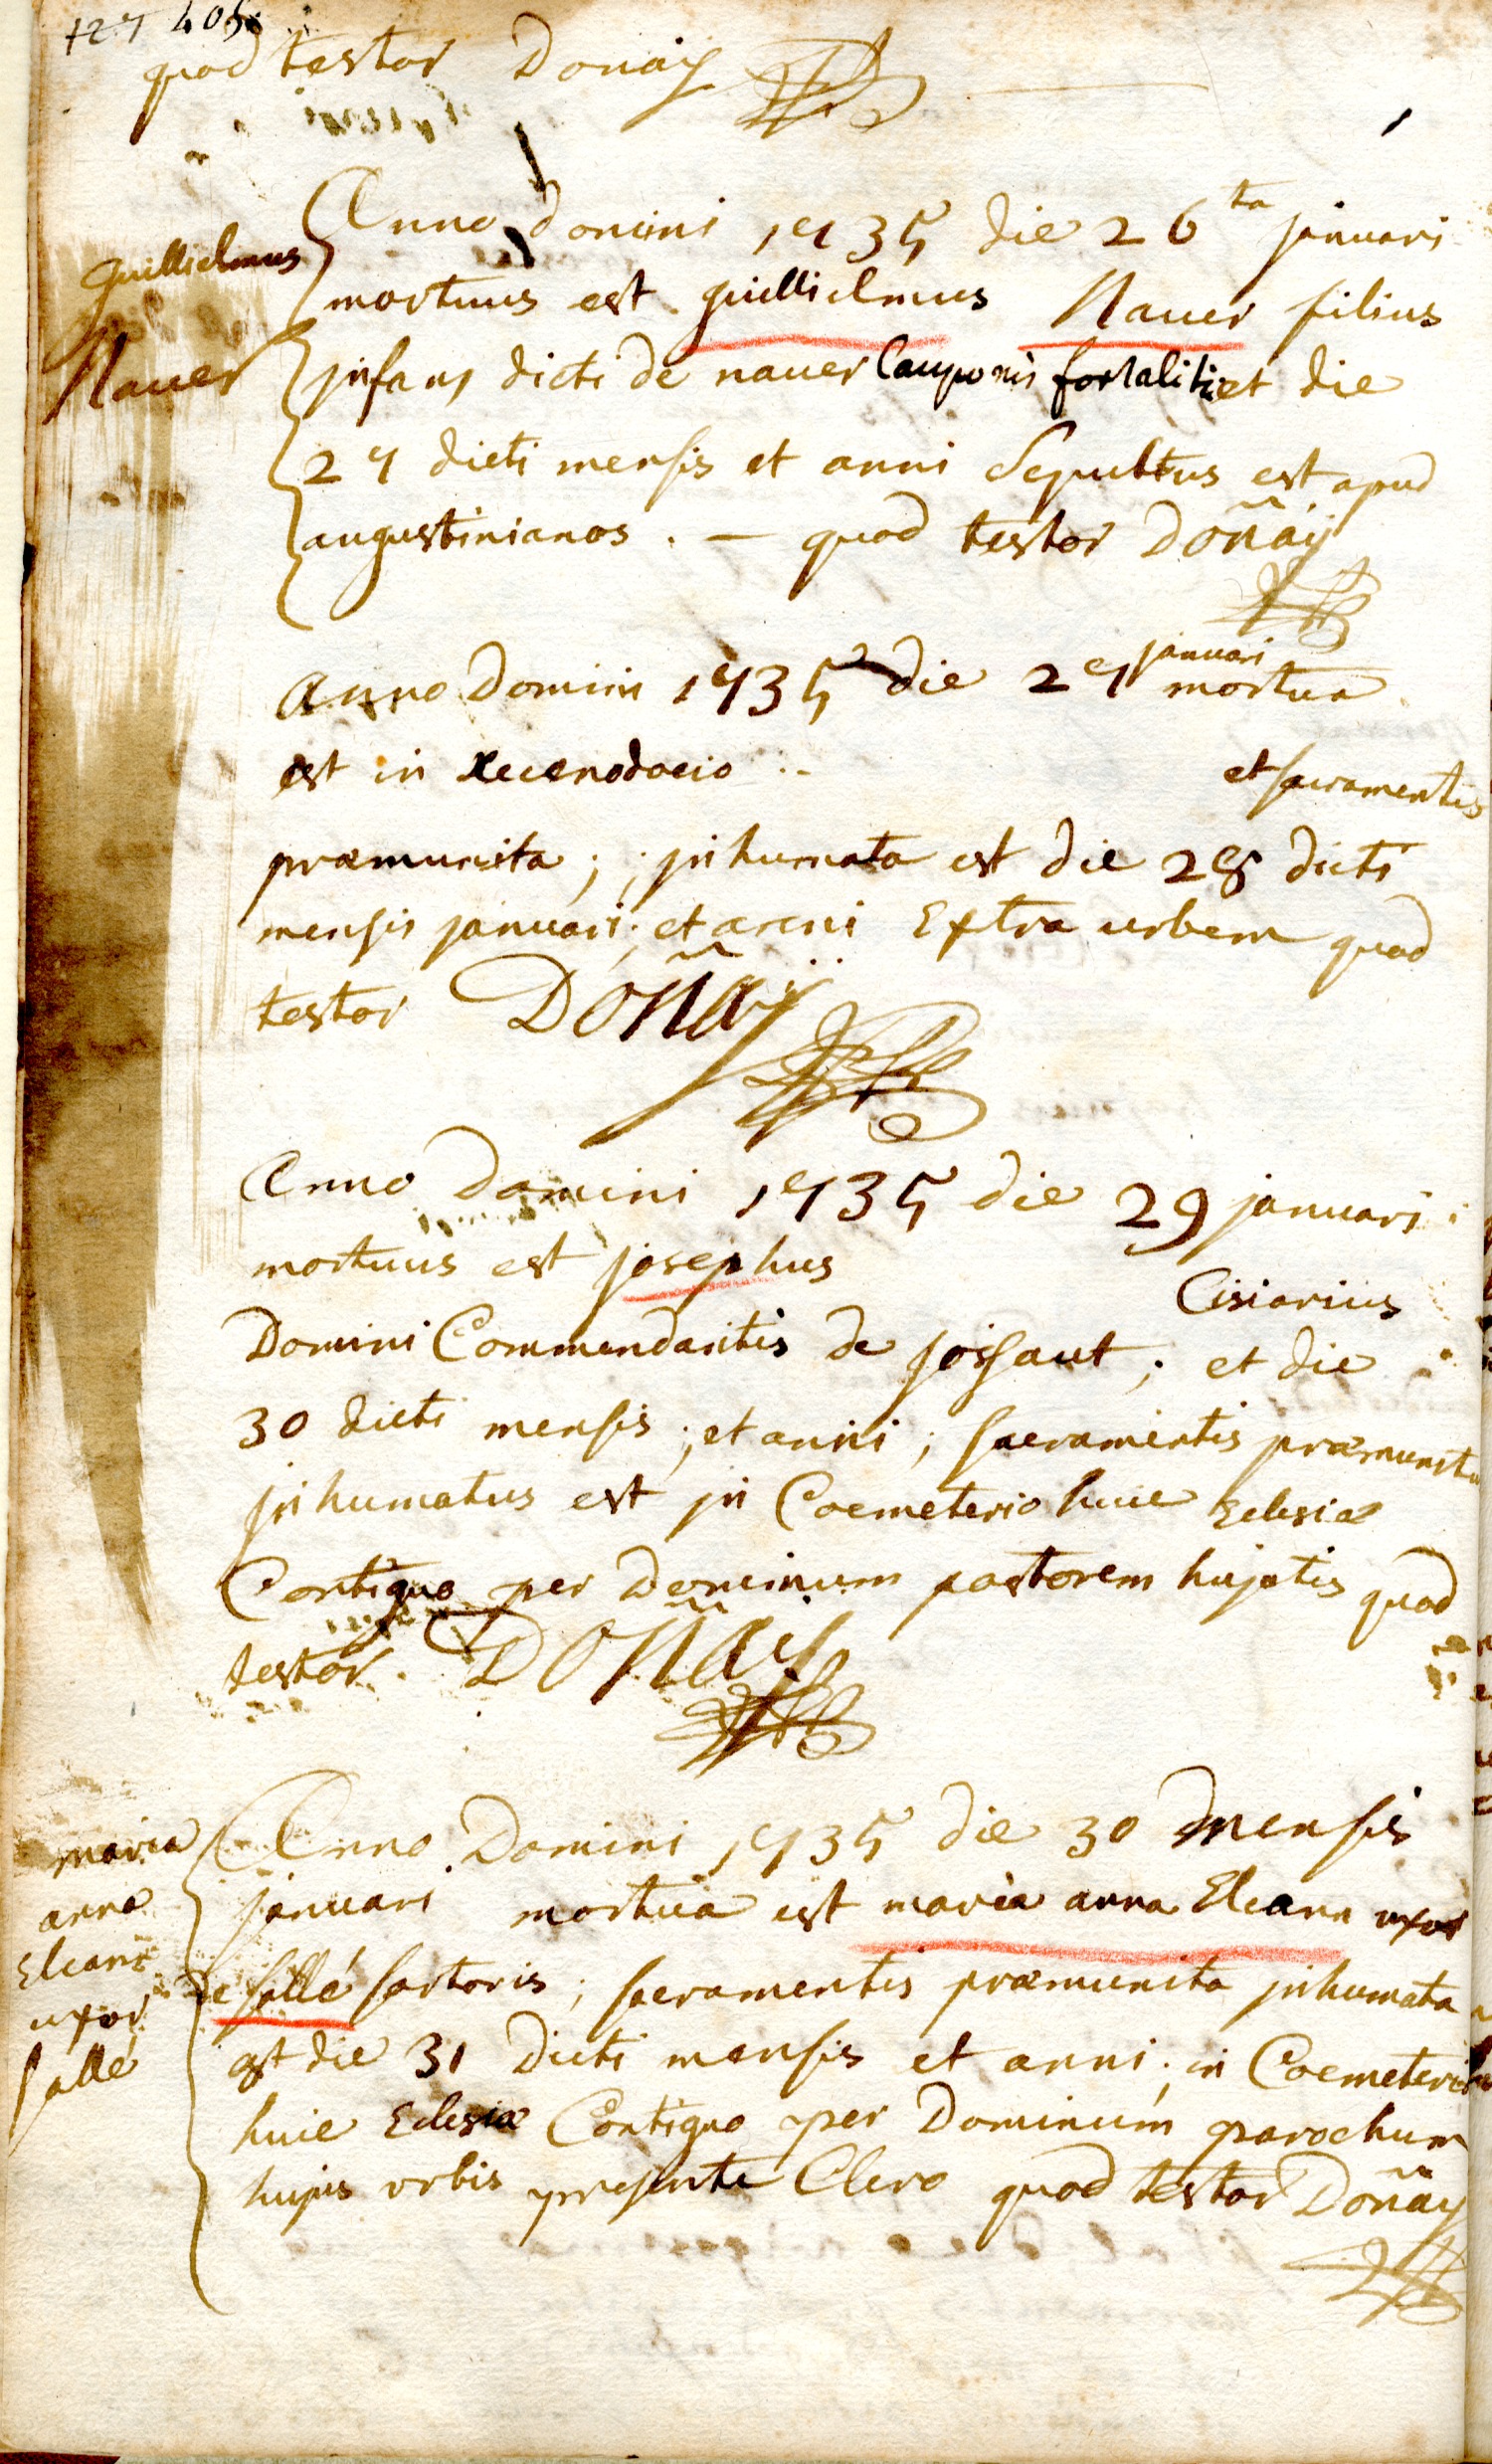 405
quod testor Donaÿ
Anno domini 1735 die 26ta januari
guillielmus
Nauer
mortuus est guillielmus Nauer filius
jnfans dicti de nauer Cauponis fortalitii et die
27 dicti mensis et anni Sepultus est apud
augustinianos . — quod testor Doñaÿ
Anno Domini 1735 die 27 januari mortua
est in xecenodocio
et sacramentis
præmunita ; jnhumata est die 28 dicti
mensis januari ; et anni Extra urbem quod
testor Doñaÿ
Anno Domini 1735 die 29 januari
mortuus est josephus
Cisiarius
Domini Commendantis de joissaut ; et die
30 dicti mensis ; et anni ; sacramentis præmunitu
jnhumatus est jn Coemeterio huic Eclesiæ
Contiguo per Dominum pastorem hujatis quod
testor . Doñaÿ
maria
anna
Eleant
uxor
sallé
Anno Domini 1735 die 30 Mensis
januari mortua est maria anna Eleann uxor
de sallé sartoris ; sacramentis præmunita jnhumata
est die 31 dicti mensis et anni ; in Coemeterio
huic Eclesiæ Contiguo per Dominum parochum
hujus urbis præsente Clero quod testor Doñaÿ